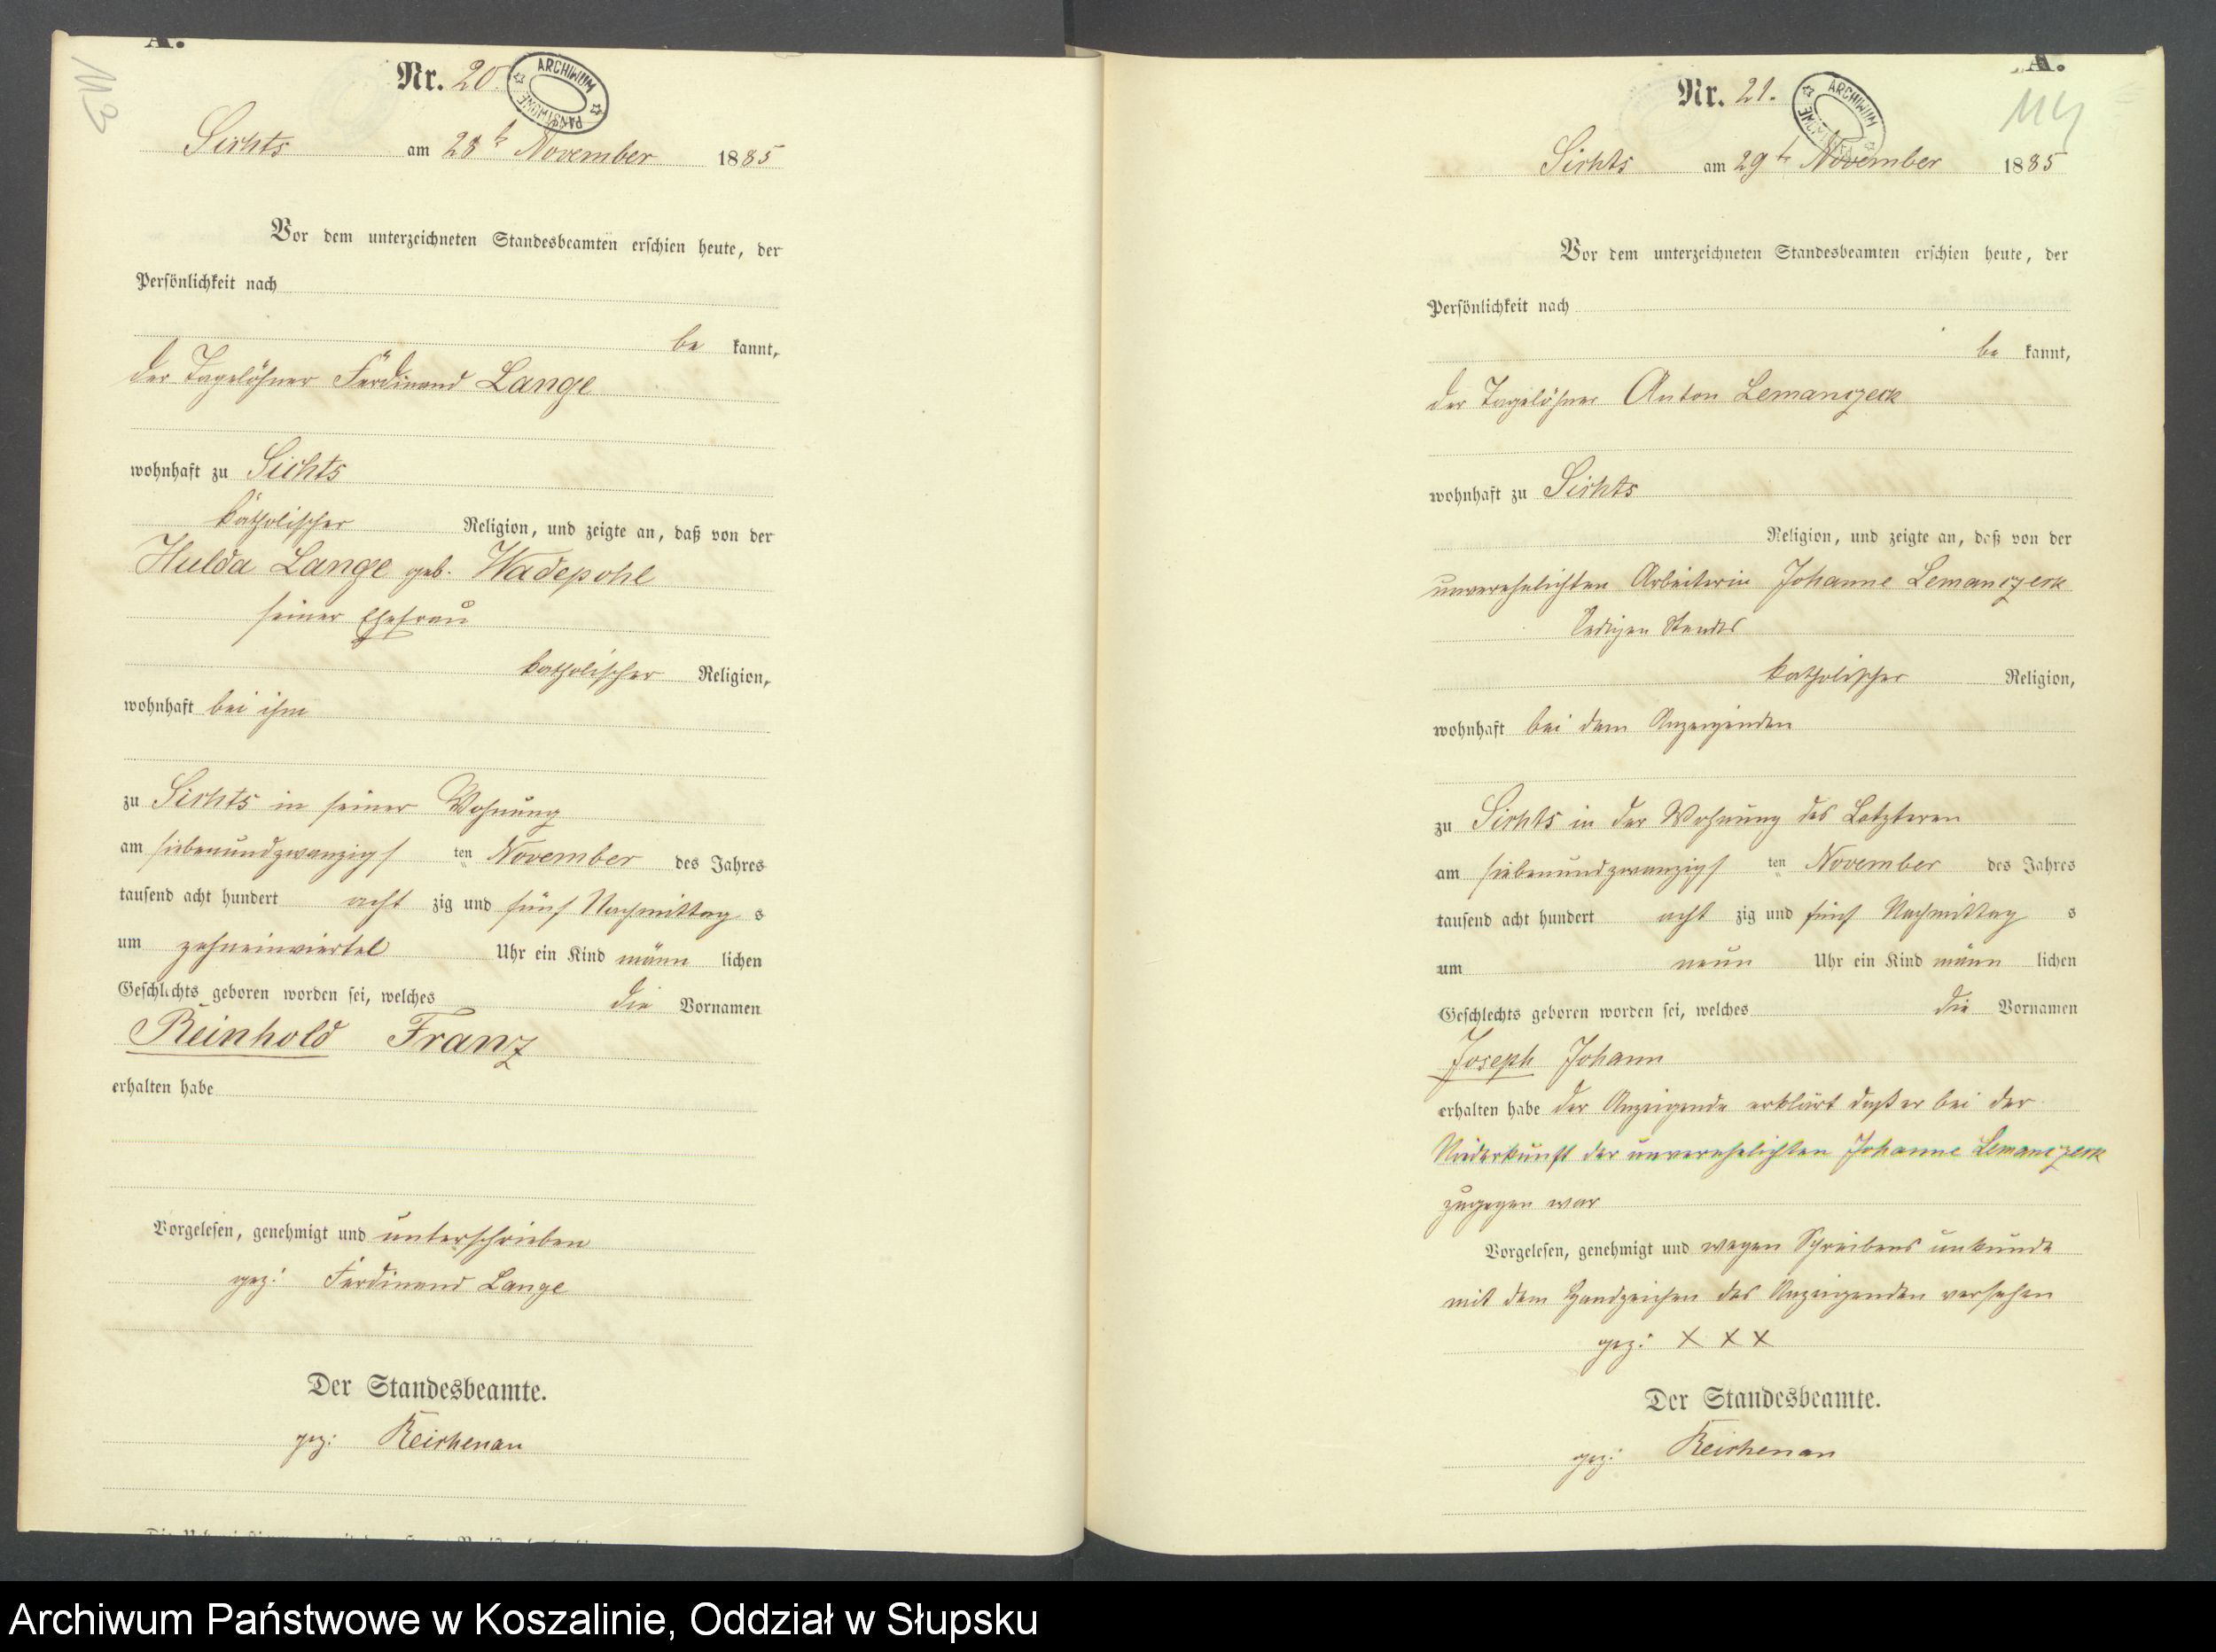 A.
113
Nr. 20.
ARCHIWUM PAŃSTWOWE
Sichts am 28t November 1885
Vor dem unterzeichneten Standesbeamten erschien heute, der
Persönlichkeit nach
be kannt,
der Tagelöhner Ferdinand Lange
wohnhaft zu Sichts
katholischer Religion, und zeigte an, daß von der
Hulda Lange geb. Wadepohl
seiner Ehefrau
katholischer Religion,
wohnhaft bei ihm
zu Sichts in seiner Wohnung
am siebenundzwanzigs ten November des Jahres
tausend acht hundert acht zig und fünf Nachmittag s
um zehneinviertel Uhr ein Kind männ lichen
Geschlechts geboren worden sei, welches die Vornamen
Reinhold Franz
erhalten habe
Vorgelesen, genehmigt und unterschrieben
gez: Ferdinand Lange
Der Standesbeamte.
gez: Reichenau
A.
114
Nr. 21.
ARCHIWUM
Sichts am 29t November 1885
Vor dem unterzeichneten Standesbeamten erschien heute, der
Persönlichkeit nach
be kannt,
der Tagelöhner Anton Lemanczeck
wohnhaft zu Sichts
Religion, und zeigte an, daß von der
unverehelichten Arbeiterin Johanne Lemanczeck
ledigen Standes
katholischer Religion,
wohnhaft bei dem Anzeigenden
zu Sichts in der Wohnung des Letzteren
am siebenundzwanzigs ten November des Jahres
tausend acht hundert acht zig und fünf Nachmittag s
um neun Uhr ein Kind männ lichen
Geschlechts geboren worden sei, welches die Vornamen
Joseph Johann
erhalten habe der Anzeigende erklärt daß er bei der
Niederkunft der unverehelichten Johanne Lemanczeck
zugegen war
Vorgelesen, genehmigt und wegen Schreibens unkunde
mit dem Handzeichen des Anzeigenden versehen
gez: X X X
Der Standesbeamte.
gez: Reichenau
Archiwum Państwowe w Koszalinie, Oddział w Słupsku